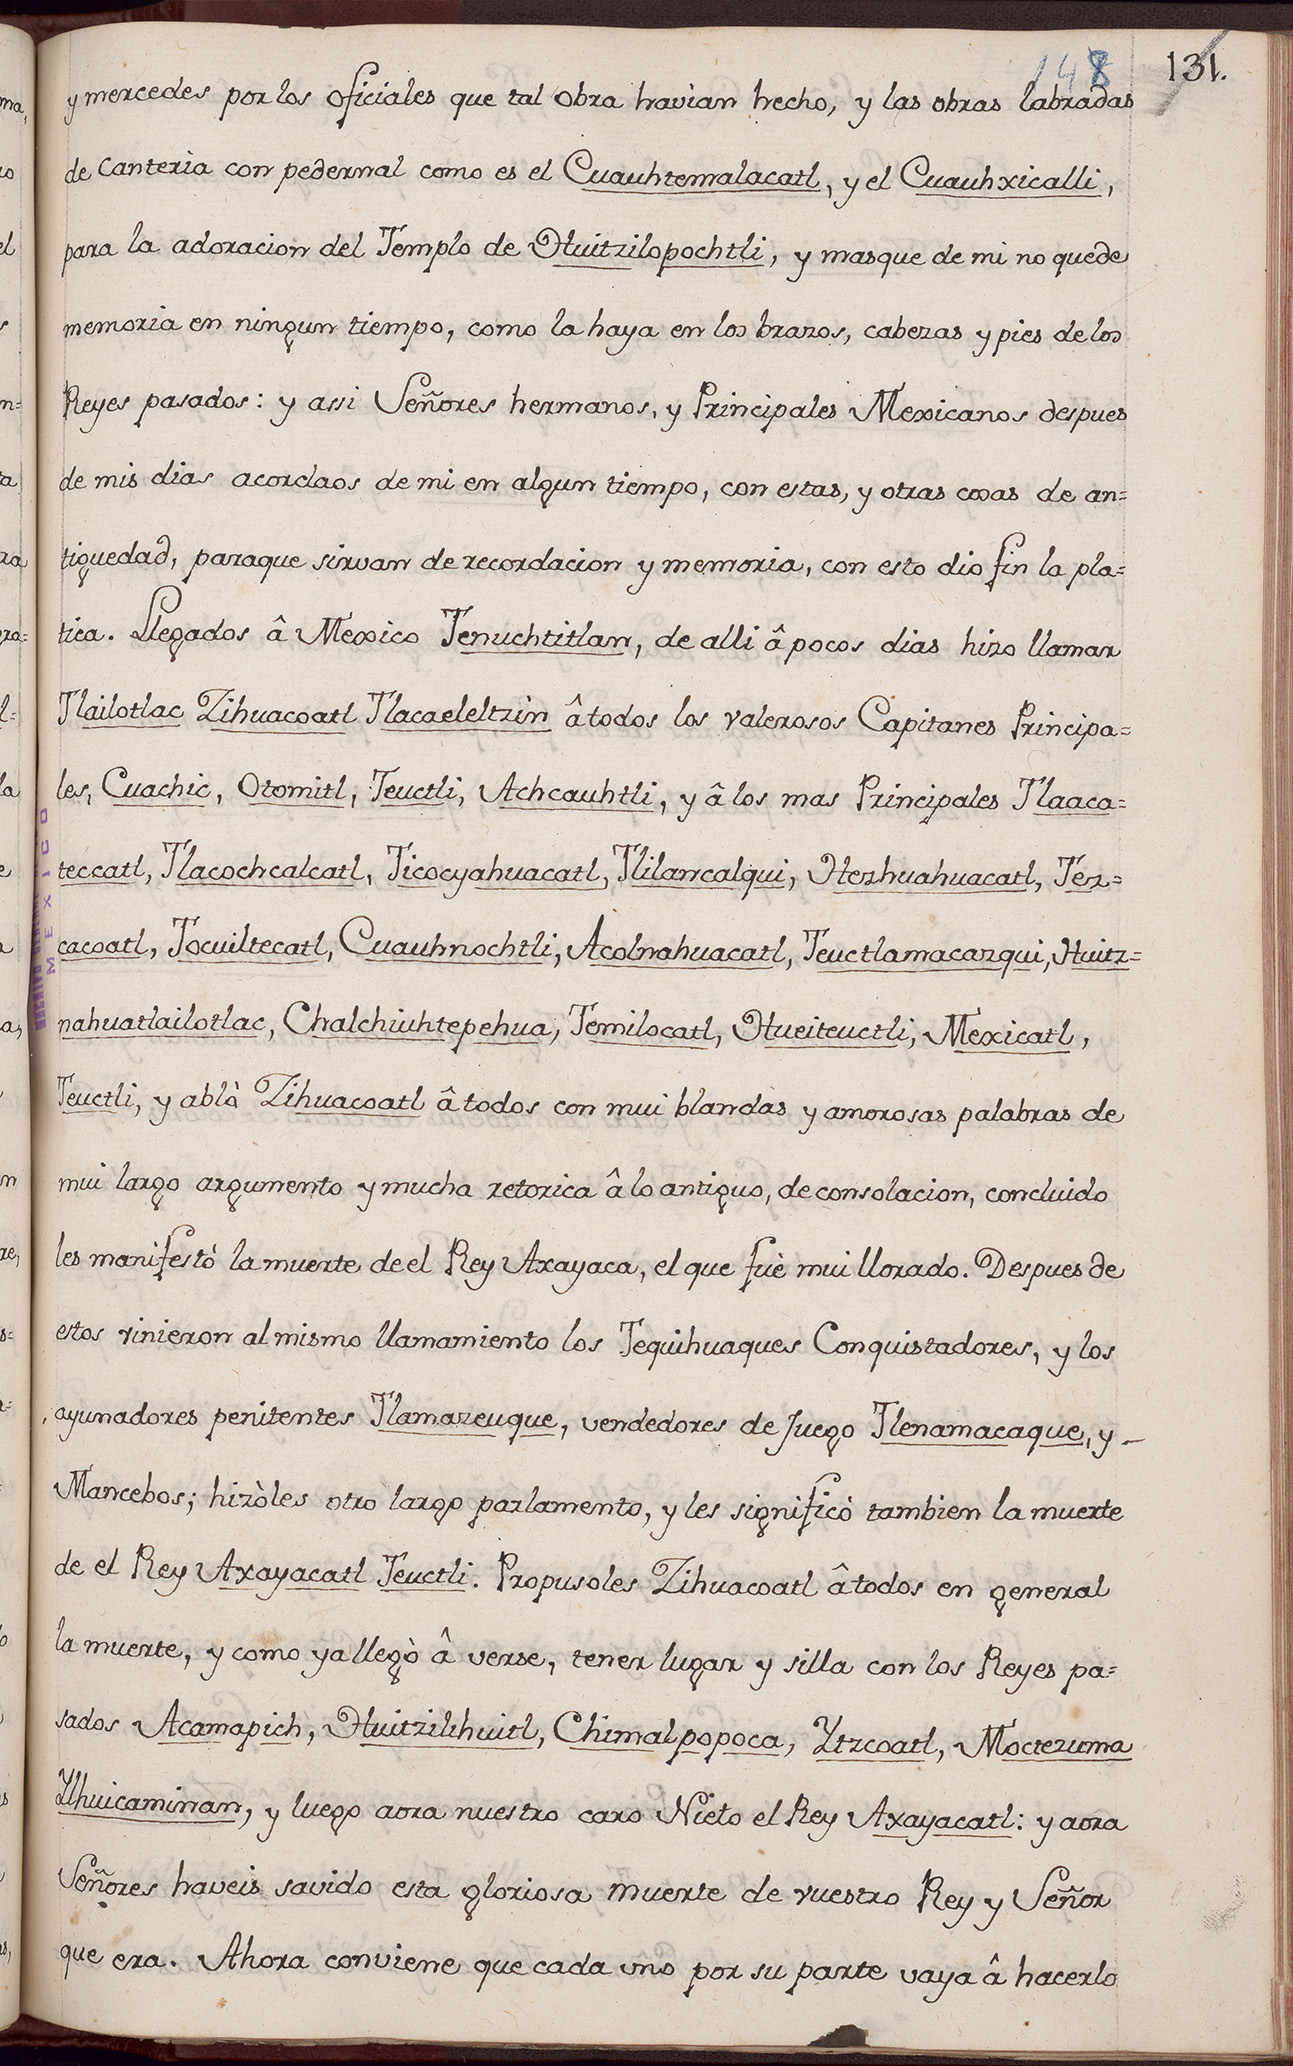 148 131.
y mercedes por los oficiales que tal obra havian hecho, y las obras labradas
de canteria con pedernal como es el Cuauhtemalacatl, y el Cuauhxicalli,
para la adoracion del Templo de Huitzilopochtli, y masque de mi no quede
memoria en ningun tiempo, como la haya en los brazos, cabezas y pies de los
Reyes pasados: y assi Señores hermanos, y Principales Mexicanos despues
de mis dias acordaos de mi en algun tiempo, con estas, y otras cosas de an=
tiguedad, paraque sirvan de recordacion y memoria, con esto dio fin la pla=
tica. Llegados â Mexico Tenuchtitlan, de alli â pocos dias hizo llamar
Tlailotlac Zihuacoatl Tlacaeleltzin â todos los valerosos Capitanes Principa=
les, Cuachic, Otomitl, Teuctli, Achcauhtli, y â los mas Principales Tlaaca=
teccatl, Tlacochcalcatl, Ticocyahuacatl, Tlilancalqui, Hezhuahuacatl, Tez=
cacoatl, Tocuiltecatl, Cuauhnochtli, Acolnahuacatl, Teuctlamacazqui, Huitz=
nahuatlailotlac, Chalchiuhtepehua, Temilocatl, Hueiteuctli, Mexicatl,
Teuctli, y ablò Zihuacoatl â todos con mui blandas y amorosas palabras de
mui largo argumento y mucha retorica â lo antiguo, de consolacion, concluido
les manifestò la muerte de el Rey Axayaca, el que fuè mui llorado. Despues de
estos vinieron al mismo llamamiento los Tequihuaques Conquistadores, y los
ayunadores penitentes Tlamazeuque, vendedores de Juego Tlenamacaque, y
Mancebos; hizòles otro largo parlamento, y les significò tambien la muerte
de el Rey Axayacatl Teuctli. Propusoles Zihuacoatl â todos en general
la muerte, y como ya llegò â verse, tener lugar y silla con los Reyes pa=
sados Acamapich, Huitzilihuitl, Chimalpopoca, Ytzcoatl, Moctezuma
Ylhuicaminan, y luego aora nuestro caro Nieto el Rey Axayacatl: y aora
Señores haveis savido esta gloriosa muerte de vuestro Rey y Señor
que era. Ahora conviene que cada uno por su parte vaya â hacerlo
MEXICO